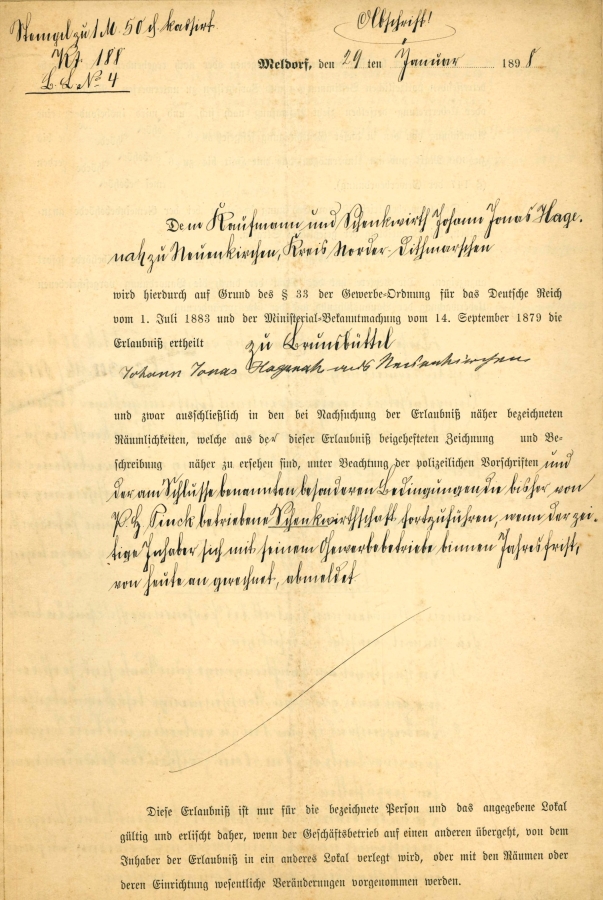 Abschrift!
Stempel zu 1 M. 50 ₰ kassiert
Kr. 188
B. L. No 4
Meldorf, den 29 ten Januar 1898
Dem Kaufmann und Schenkwirth Johann Jonas Hage-
nah zu Neuenkirchen, Kreis Norder-Dithmarschen
wird hierdurch auf Grund des § 33 der Gewerbe-Ordnung für das Deutsche Reich
vom 1. Juli 1883 und der Ministerial-Bekanntmachung vom 14. September 1879 die
Erlaubniß ertheilt zu Brunsbüttel
Johann Jonas Hagenah aus Neuenkirchen
und zwar ausschließlich in den bei Nachsuchung der Erlaubniß näher bezeichneten
Räumlichkeiten, welche aus der dieser Erlaubniß beigehefteten Zeichnung und Be-
schreibung näher zu ersehen sind, unter Beachtung der polizeilichen Vorschriften und
der am Schlusse benannten besonderen Bedingungen die bisher von
P. H. Pinck betriebene Schenkwirthschaft fortzuführen, wenn der zei-
tige Inhaber sich mit seinem Gewerbebetriebe binnen Jahresfrist,
von heute an gerechnet, abmeldet
Diese Erlaubniß ist nur für die bezeichnete Person und das angegebene Lokal
gültig und erlischt daher, wenn der Geschäftsbetrieb auf einen anderen übergeht, von dem
Inhaber der Erlaubniß in ein anderes Lokal verlegt wird, oder mit den Räumen oder
deren Einrichtung wesentliche Veränderungen vorgenommen werden.